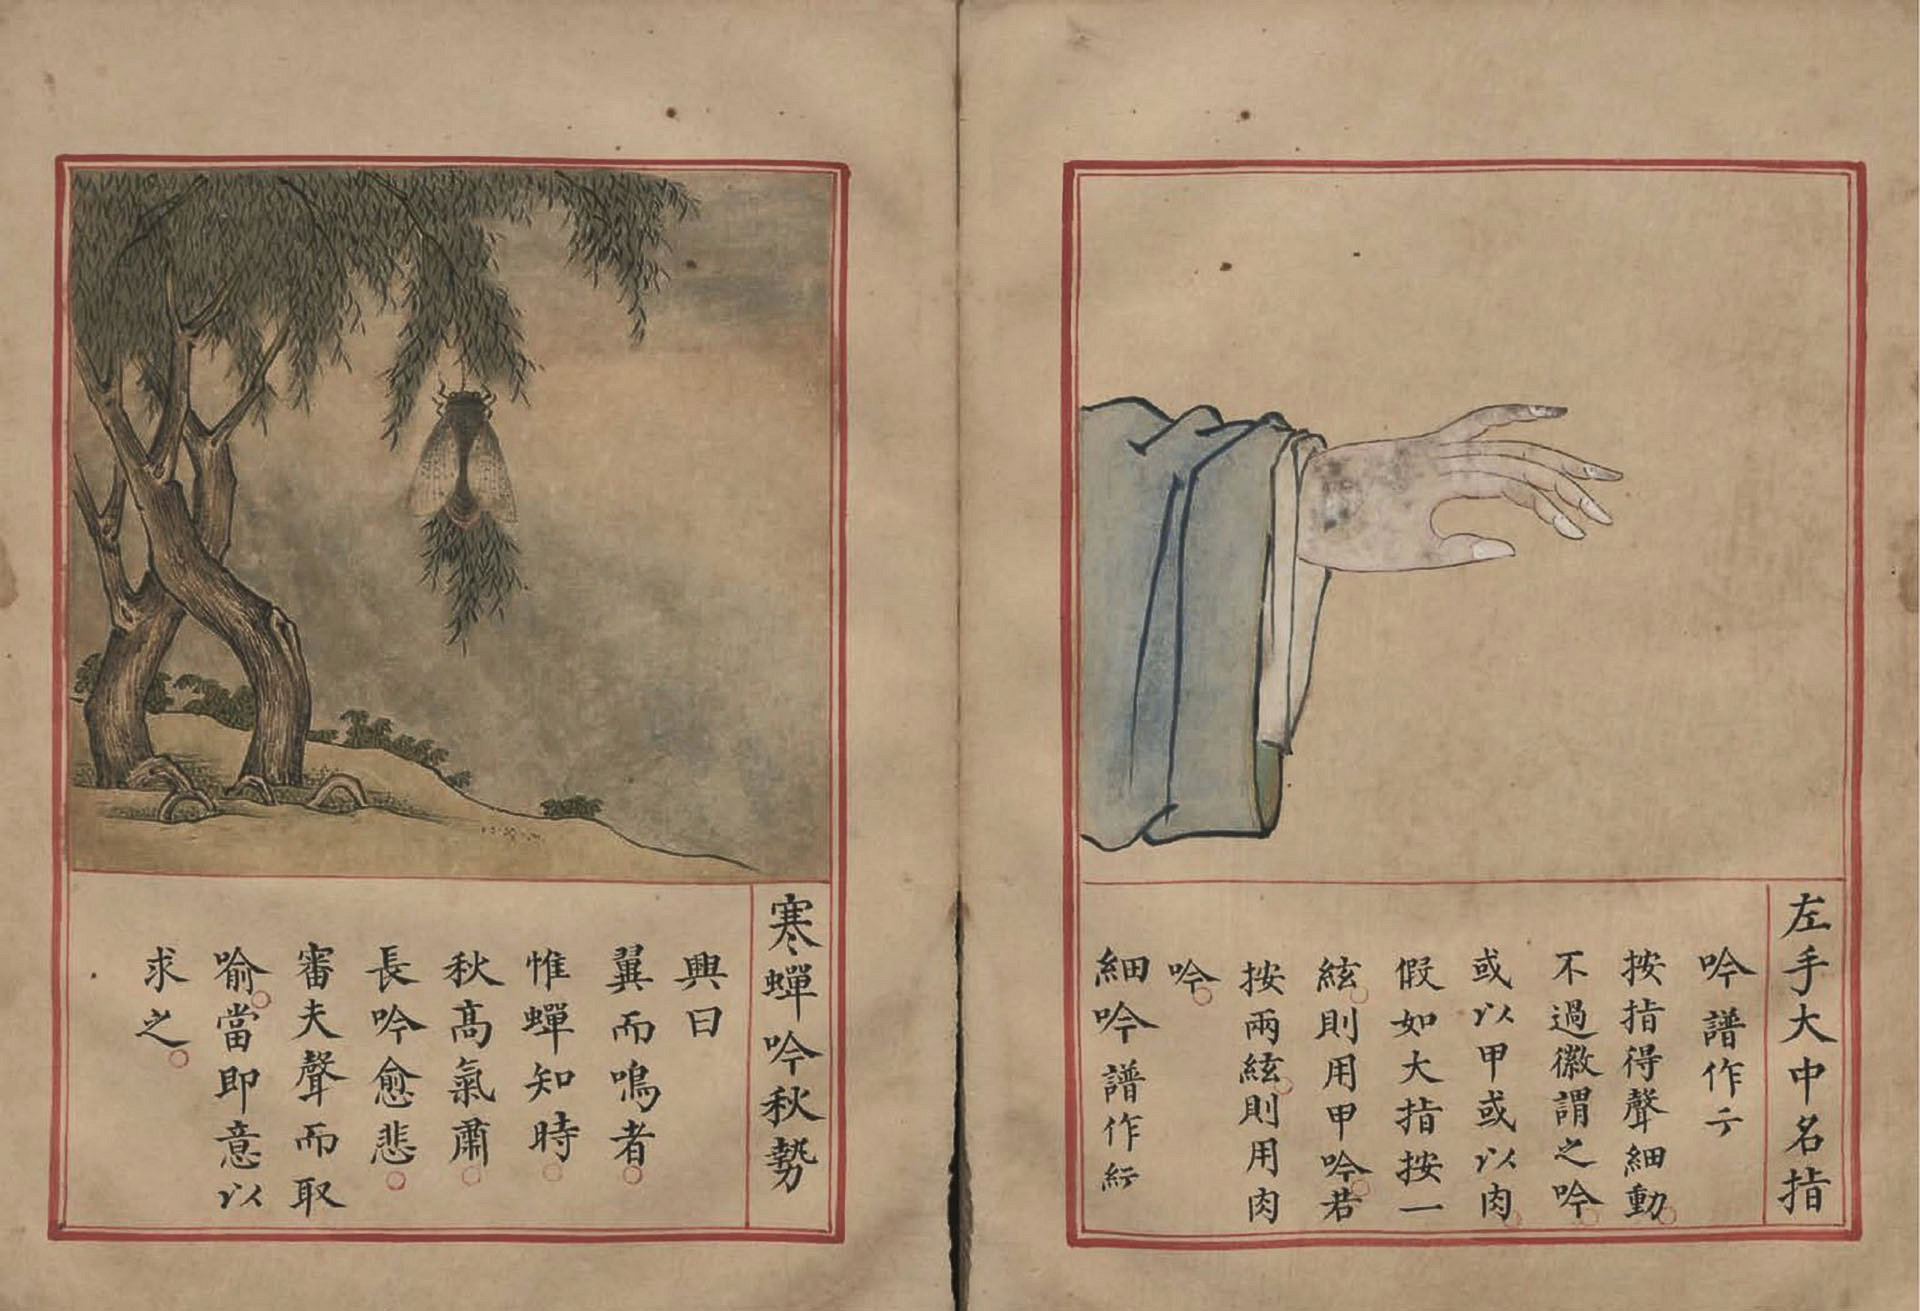 左手大中名指
吟譜作亍
按指得聲細動
不過徽謂之吟
或以甲或以肉
假如大指按一
絃則用甲吟若
按兩絃則用肉
吟
細吟譜作
寒蟬吟秋勢
興曰
翼而鳴者
惟蟬知時
秋髙氣肅
長吟愈悲
審夫聲而取
喻當即意以
求之